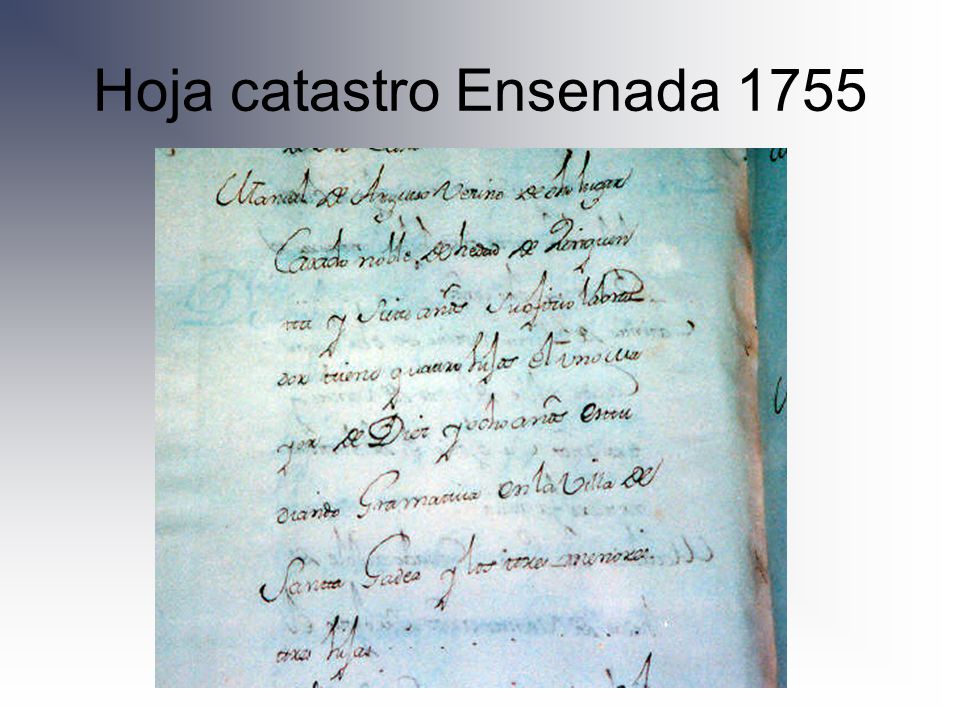 Hoja catastro Ensenada 1755
Manuel de Argueso Vecino de dho lugar
Casado noble de hedad de Zinquen
tta y Siete años su ofizio labra
dor tiene quatro hijos el uno ma
yor de Diez y ocho años estu
diando Gramatica en la Villa de
Santta Gadea y los ttres menores
ttres hijas